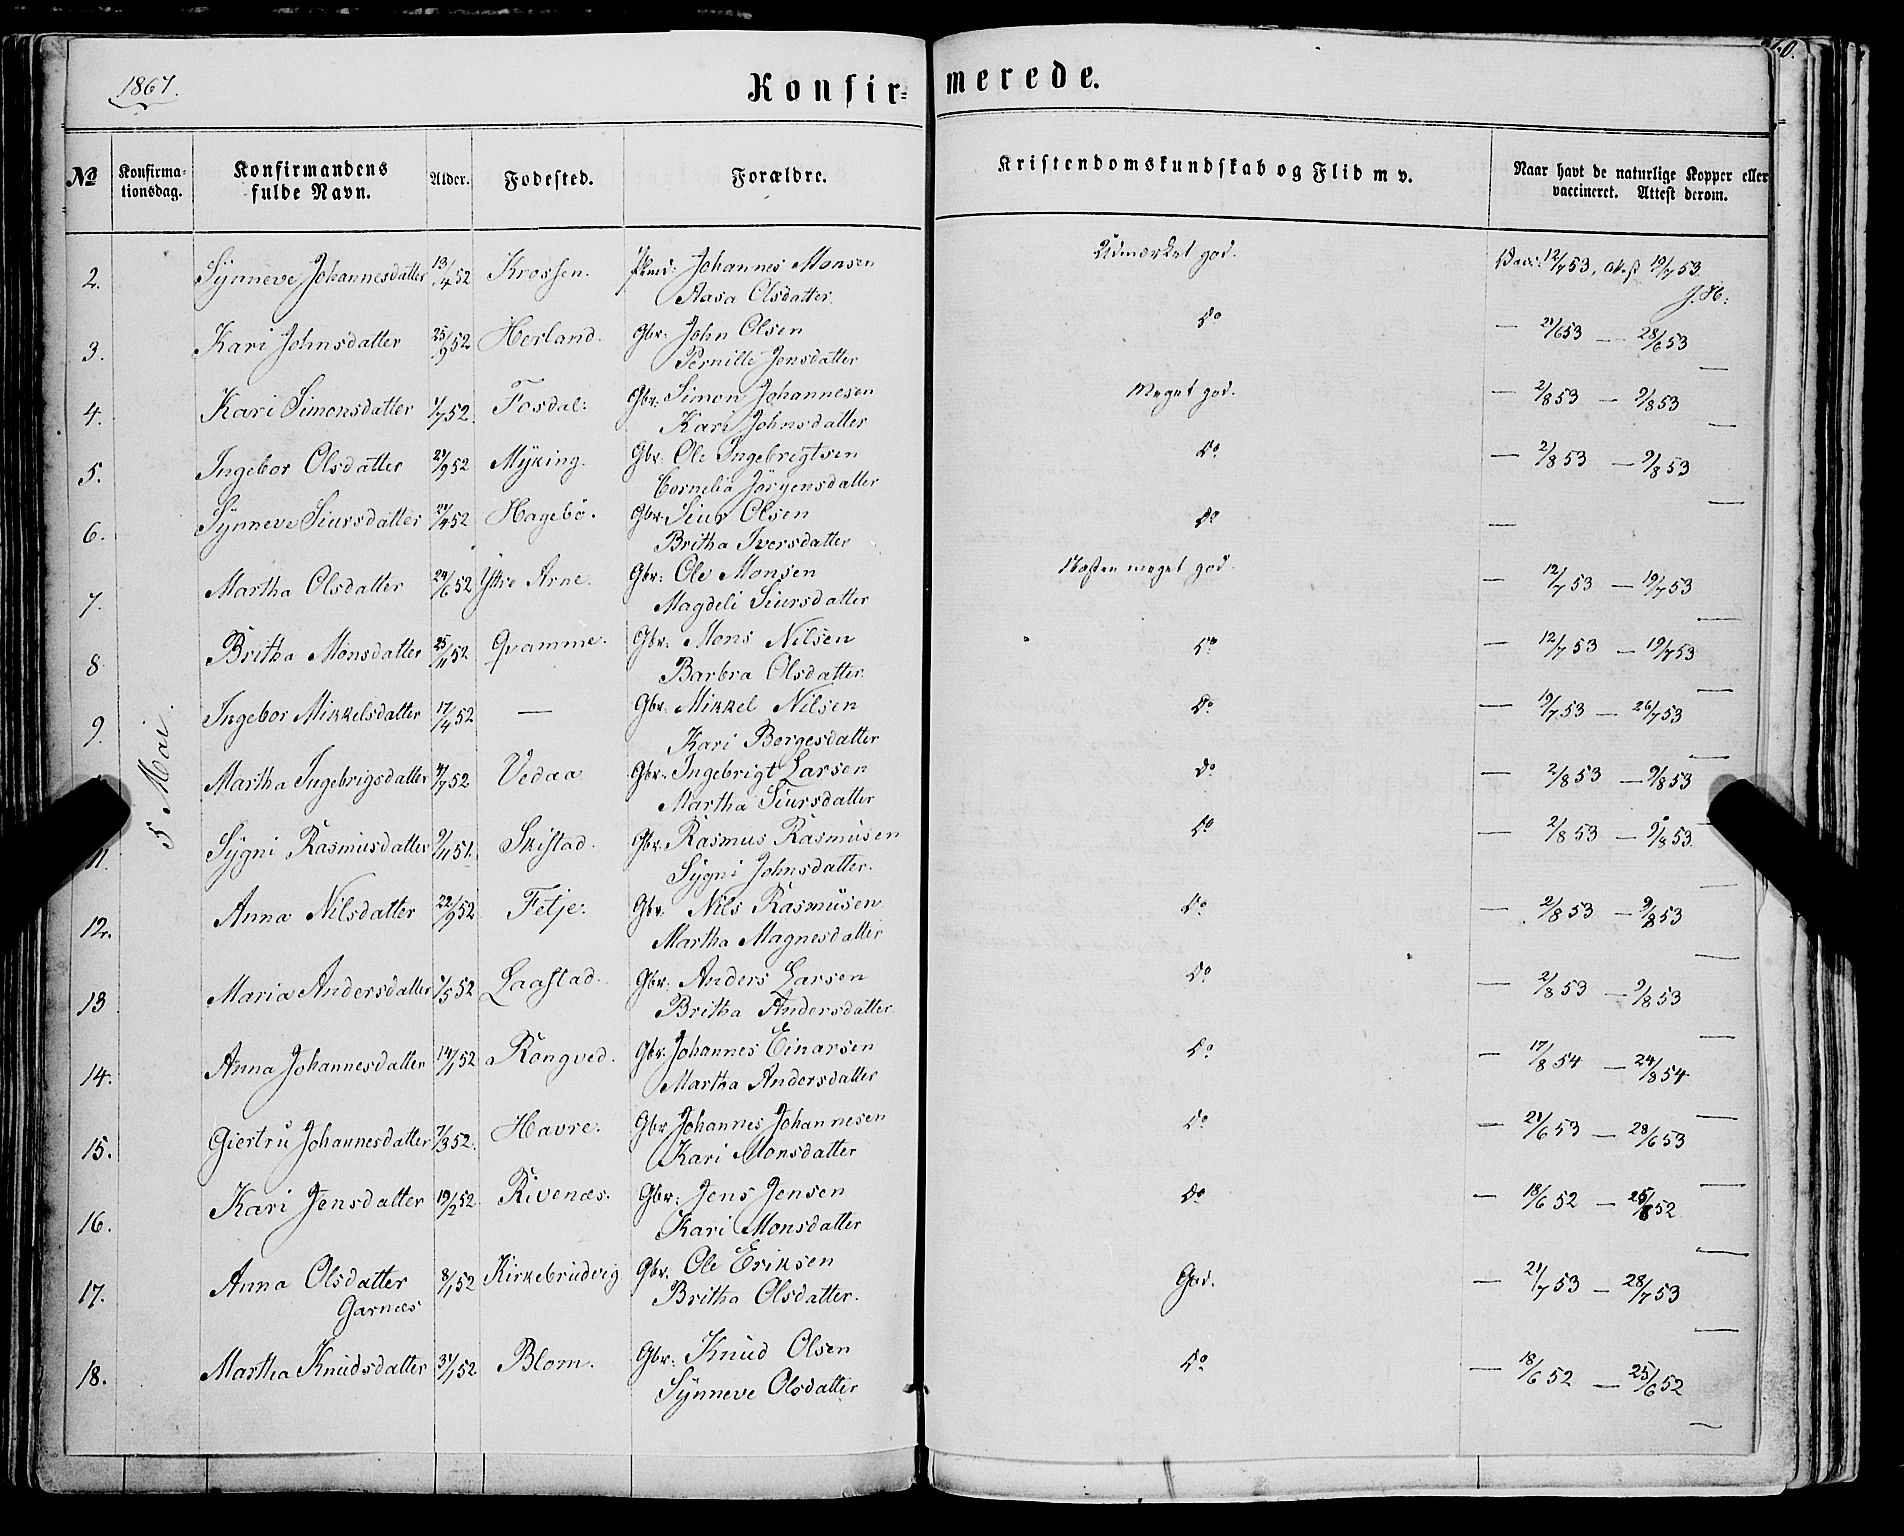 1867.
Konfir= merede.
No
Konfirma-
tionsdag.
Konfirmandens
fulde Navn.
Alder.
Fødested.
Forældre.
Kristendomskundskab og Flid m v.
Naar havt de naturlige Kopper eller
vaccineret. Attest derom.
5 Mai.
2. Synneve Johannesdatter 13/4 52 Krossen. Johannes Monsen Udmærket god. Vacc: 12/7 53, att. 19/7 53.
Aasa Olsdatter. J.H:
3. Kari Johnsdatter 25/9 52 Herland. Gbr: John Olsen Do — 21/6 53 — 28/6 53
Pernille Jensdatter —
4. Kari Simonsdatter 1/7 52. Fosdal: Gbr: Simon Johannesen Meget god. — 2/8 53 — 9/8 53
Kari Johnsdatter —
5. Ingebor Olsdatter 21/9 52 Myking. Gbr: Ole Ingebrigtsen Do — 2/8 53 — 9/8 53
Cornelia Jørgensdatter —
6. Synneve Siursdatter /4 52 Hagebø. Gbr: Siur Olsen Do —
Britha Iversdatter
7. Martha Olsdatter 24/6 52 Ytre Arne. Gbr: Ole Monsen Næsten meget god. — 12/7 53 — 19/7 53
Magdeli Siursdatter —
8. Britha Monsdatter 25/11 52 Qvamme. Gbr: Mons Nilsen Do — 12/7 53 — 19/7 53
Barbra Olsdatter. —
9. Ingebor Mikkelsdatter 17/4 52 — Gbr: Mikkel Nilsen Do — 19/7 53 — 26/7 53
Kari Borgesdatter —
Martha Ingebrigsdatter /7 52 Vedaa Gbr: Ingebrigt Larsen Do — 2/8 53 — 9/8 53
Martha Siursdatter —
11. Sygni Rasmusdatter 9/11 51. Skistad. Gbr: Rasmus Rasmusen Do — 2/8 53 — 9/8 53.
Sygni Johnsdatter. —
12. Anna Nilsdatter 22/9 52 Fetje. Gbr. Nils Rasmusen Do — 2/8 53 — 9/8 53
Martha Magnesdatter —
13 Maria Andersdatter /5 52 Laastad. Gbr: Anders Larsen Do — 2/8 53 — 9/8 53
Britha Andersdatter. —
14. Anna Johannesdatter 14/1 52 Rongved. Gbr: Johannes Einarsen Do — 17/8 54 — 24/8 54
Martha Andersdatter —
15. Giertru Johannesdatter 7/3 52. Havre. Gbr Johannes Johannesen Do — 21/6 53 — 28/6 53
Kari Monsdatter —
16. Kari Jensdatter 19/2 52. Rivenæs. Gbr: Jens Jensen Do — 18/6 52 — 25/6 52
Kari Monsdatter —
17. Anna Olsdatter 8/1 52 Kirkebrudvig Gbr. Ole Eriksen God. — 21/7 53 — 28/7 53
Garnæs Britha Olsdatter. —
18. Martha Knudsdatter 31/1 52 Blom. Gbr: Knud Olsen Do — 18/6 52 — 25/6 52
Synneve Olsdatter —